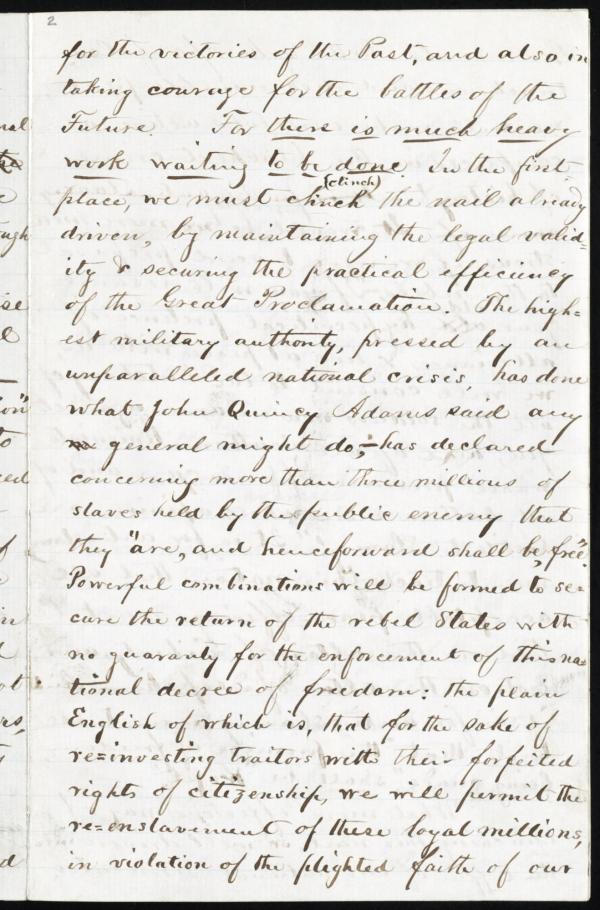 2
for the victories of the Past, and also in
taking courage for the battles of the
Future. For there is much heavy
work waiting to be done. In the first
(clinch)
place, we must clinch the nail already
driven, by maintaining the legal valid=
ity & securing the practical efficiency
of the Great Proclamation. The high=
est military authority, pressed by an
unparalleled national crisis, has done
what John Quincy Adams said any
general might do;—has declared
concerning more than three millions of
slaves held by the public enemy that
they "are, and henceforward shall be, free."
Powerful combinations will be formed to se=
cure the return of the rebel States with
no guaranty for the enforcement of this na=
tional decree of freedom: the plain
English of which is, that for the sake of
re=investing traitors with their forfeited
rights of citizenship, we will permit the
re=enslavement of these loyal millions,
in violation of the plighted faith of our